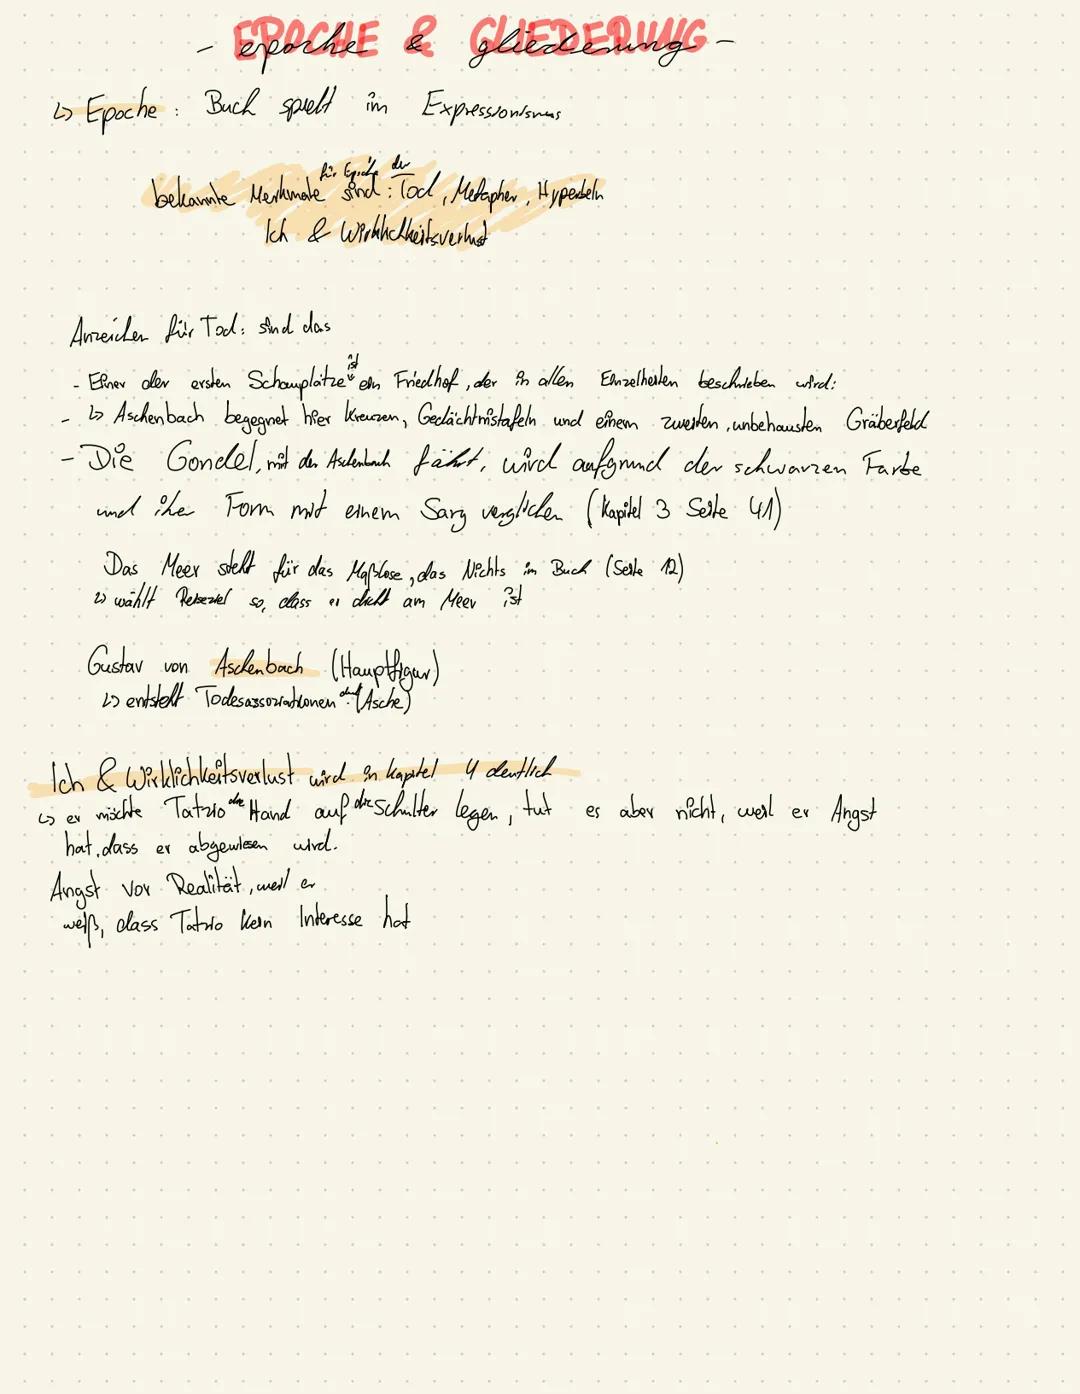 - EPOCHE & GLIEDERUNG -
epoche & gliederung
↳ Epoche: Buch spielt im Expressionismus
für Epoche der
bekannte Merkmale sind: Tod, Metapher, Hyperbeln
Ich & Wirklichkeitsverlust
Anzeichen für Tod: sind das
- Einer der ersten Schauplätze ist ein Friedhof, der in allen Einzelheiten beschrieben wird:
- ↳ Aschenbach begegnet hier Kreuzen, Gedächtnistafeln und einem zweiten, unbehausten Gräberfeld
- Die Gondel, mit der Aschenbach fährt, wird aufgrund der schwarzen Farbe
und ihe Form mit einem Sarg verglichen (Kapitel 3 Seite 41)
Das Meer steht für das Maßlose, das Nichts im Buch (Seite 12)
↳ wählt Reiseziel so, dass er dicht am Meer ist
Gustav von Aschenbach (Hauptfigur)
↳ entsteht Todesassoziationen durch (Asche)
Ich & Wirklichkeitsverlust wird in Kapitel 4 deutlich
↳ er möchte Tatzio die Hand auf die Schulter legen, tut es aber nicht, weil er Angst
hat, dass er abgewiesen wird.
Angst vor Realität, weil er
weiß, dass Tatzio kein Interesse hat